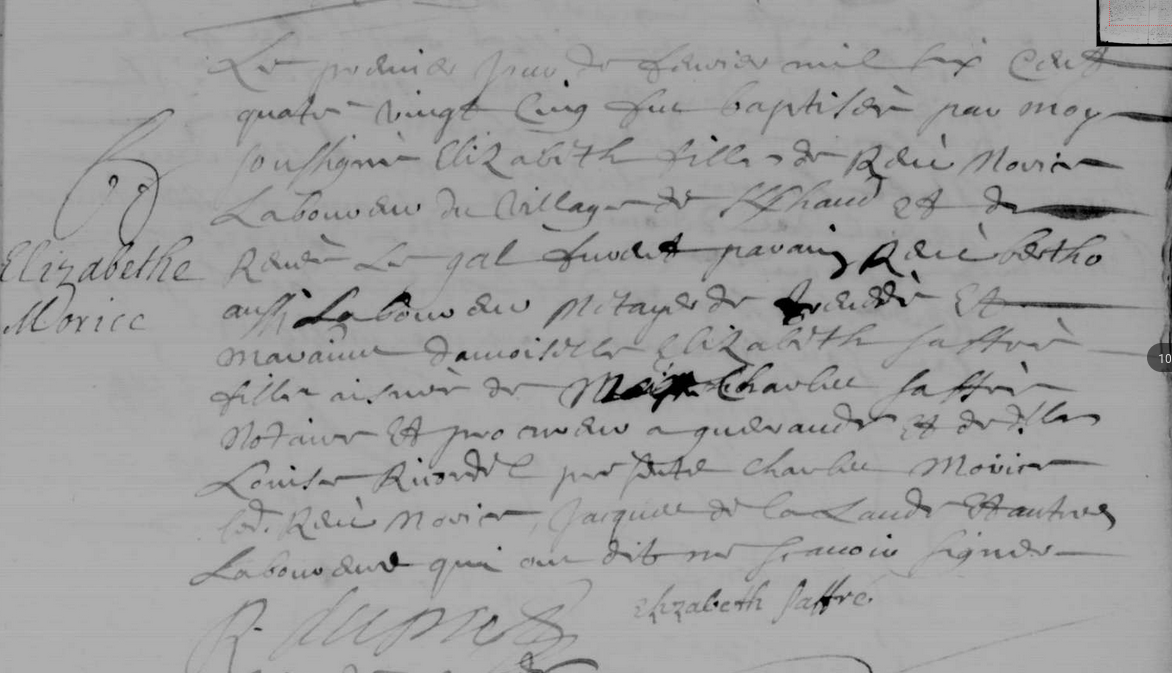 Le premier jour de febvrier mil six Cent
quatre vingt Cinq fut baptisée par moy
soussigné Elizabeth fille de René Morice
Laboureur du village de et de
Renée Le gal furent parain René bertho
aussi Laboureur Metayer de Et
maraine damoiselle Elizabeth Jaffré
fille aisnée de Charles Jaffré
Notaire Et procureur a guerande et de dlle
Louise Ricordel presente Charles Morice
led. René Morice, Jacques de la Lande Et autres
Laboureurs qui ont dit ne scavoir signer
Elizabeth Jaffré
Elizabethe
Morice